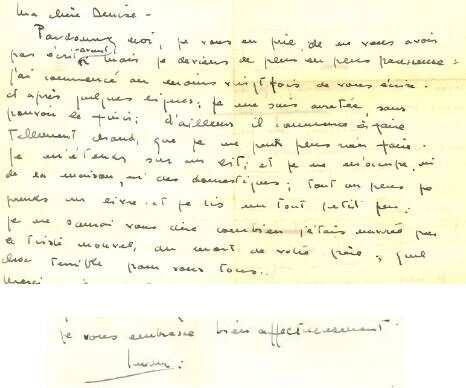 Ma chère Denise -
Pardonnez moi, je vous en prie, de ne vous avoir
pas écrit avant mais je deviens de plus en plus paresseuse :
j'ai commencé au moins vingt fois de vous écrire.
et après quelques lignes, je me suis arretée, sans
pouvoir le finir ; d'ailleurs il commence à faire
tellement chaud, que je ne peux plus rien faire -
Je m'étends sur un lit, et je ne m'occupe ni
de la maison, ni des domestiques ; tout au plus je
prends un livre et je lis un tout petit peu.
je ne saurai vous dire combien j'étais navrée par
la triste nouvel, du mort de votre père, quel
choc terrible pour vous tous..
Merci
je vous embrasse bien affectueusement